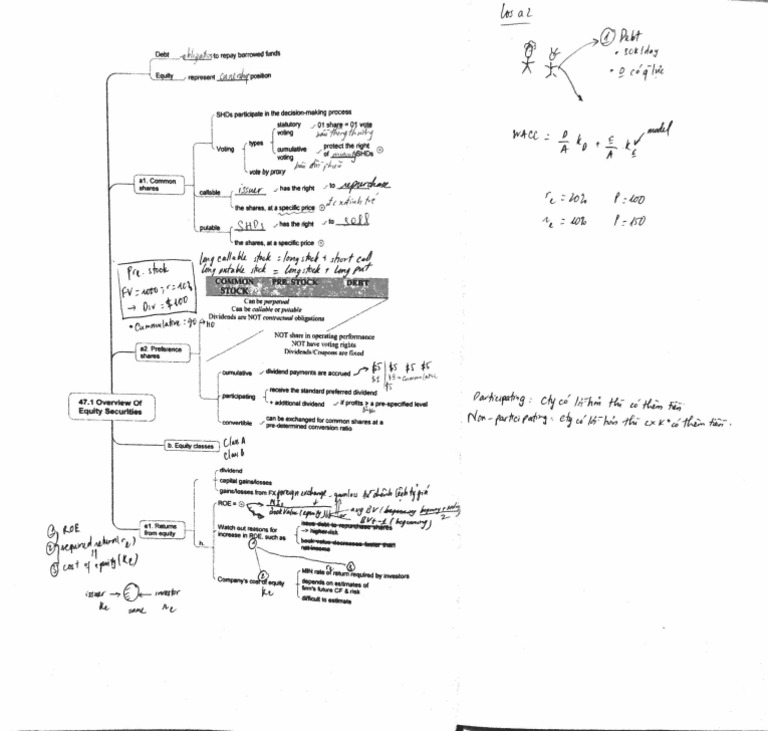 Debt obligation to repay borrowed funds
Equity represent ownership position
SHDs participate in the decision-making process
statutory voting 01 share = 01 vote
Voting types
cumulative voting protect the right of minority SHDs
vote by proxy
a1. Common shares
callable issuer has the right to repurchase
the shares, at a specific price
putable SHDs has the right to sell
the shares, at a specific price
long callable stock = long stock + short call
long putable stock = long stock + long put
Pre. stock
FV = 1000; r = 10%
→ Div = $100
• Cummulative: go → no
COMMON STOCK PRE. STOCK DEBT
Can be perpetual
Can be callable or putable
Dividends are NOT contractual obligations
NOT share in operating performance
NOT have voting rights
Dividends/Coupons are fixed
a2. Preference shares
cumulative dividend payments are accrued → $5 $5 $5 $5
participating receive the standard preferred dividend
+ additional dividend if profits ≥ a pre-specified level
convertible can be exchanged for common shares at a pre-determined conversion ratio
47.1 Overview Of Equity Securities
b. Equity classes Class A
Class B
dividend
capital gains/losses
gains/losses from FX foreign exchange
ROE = NI
book value (equity)
avg BV
BVt-1 (beginning)
e1. Returns from equity
h.
Watch out reasons for increase in ROE, such as
issue debt to repurchase shares
→ higher risk
book value decreases faster than net income
Company's cost of equity
ke
MIN rate of return required by investors
depends on estimates of firm's future CF & risk
difficult to estimate
① ROE
② required return (re)
③ cost of equity (ke)
issuer → ← investor
ke same re
Los a2
① Debt
WACC = D/A kD + E/A kE model
re = 20% P = 100
re = 10% P = 150
Participating: cty có lời hơn thì có thêm tiền
Non-participating: cty có lời hơn thì cx k có thêm tiền.